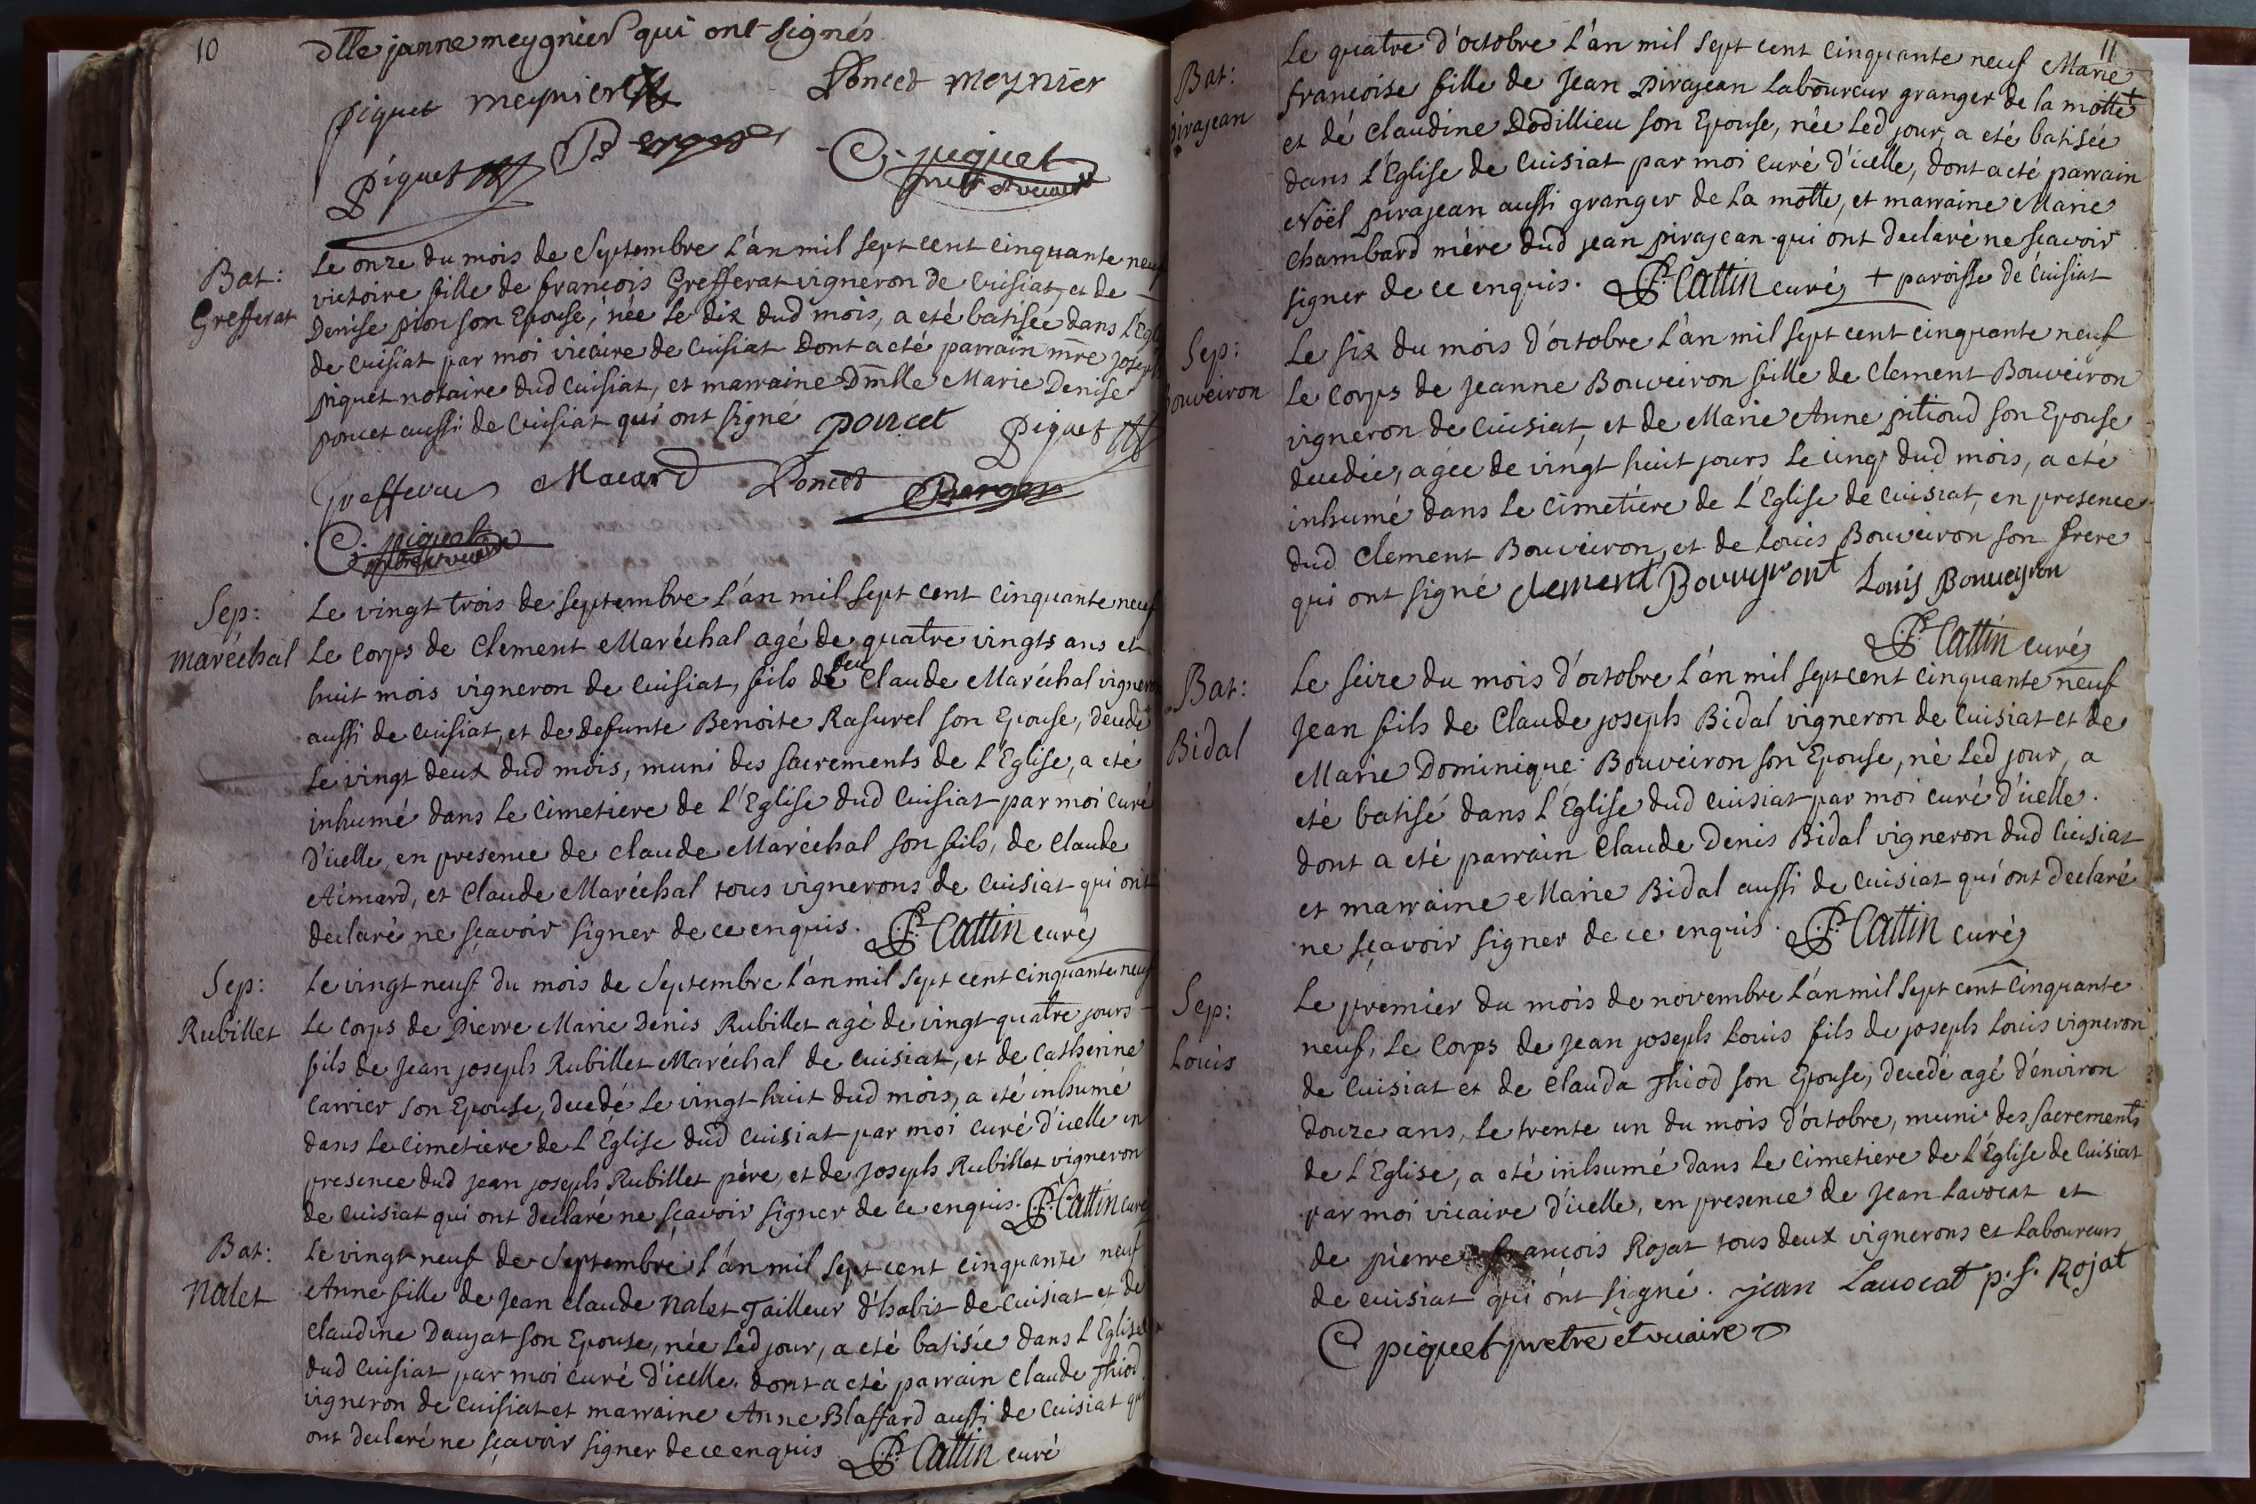 10
dlle janne meygnier qui ont signés
piquet meynier Poncet meynier
Piquet Berger C. piquet
prêtre et vicaire
Bat:
Grefferat
Le onze du mois de Septembre L'an mil sept cent cinquante neuf
victoire fille de francois Grefferat vigneron de Cuisiat, et de
Denise pion son Epouse, née le dix dud mois, a eté batisée dans L'Egl
de Cuisiat par moi vicaire de Cuisiat Dont a eté parrain mre joseph
piquet notaire dud Cuisiat, et marraine Dmlle Marie Denise
poncet aussi de Cuisiat qui ont signé poncet Piquet
Grefferat Macard Poncet Berger
C. piquet
prêtre et vicaire
Sep:
maréchal
Le vingt trois de septembre L'an mil sept cent cinquante neuf
Le corps de Clement Maréchal agé de quatre vingts ans et
huit mois vigneron de Cuisiat, fils de feu Claude Maréchal vigneron
aussi de Cuisiat, et de defunte Benoite Rasurel son Epouse, decedé
Le vingt deux dud mois, muni des sacrements de L'Eglise, a eté
inhumé dans Le Cimetiere de L'Eglise dud Cuisiat par moi Curé
D'icelle, en presence de Claude Maréchal son fils, de Claude
Aimard, et Claude Maréchal tous vignerons de Cuisiat qui ont
declaré ne sçavoir signer de ce enquis. P. Cattin curé
Sep:
Rubillet
Le vingt neuf du mois de Septembre L'an mil sept cent cinquante neuf
Le corps de Pierre Marie Denis Rubillet agé de vingt quatre jours
fils de Jean joseph Rubillet Maréchal de Cuisiat, et de Catherine
Carrier son Epouse, decedé Le vingt huit dud mois, a eté inhumé
dans Le cimetiere de L'Eglise dud Cuisiat par moi curé d'icelle en
presence dud jean joseph Rubillet père, et de Joseph Rubillet vigneron
de Cuisiat qui ont declaré ne sçavoir signer de ce enquis. P. Cattin curé
Bat:
Nalet
Le vingt neuf de Septembre L'an mil sept cent cinquante neuf
Anne fille de Jean Claude Nalet Tailleur d'habit de Cuisiat et de
Claudine Daujat son Epouse, née Led jour, a eté batisée dans L'Eglise
dud Cuisiat par moi curé d'icelle. dont a eté parrain Claude Thiod
vigneron de Cuisiat et marraine Anne Blaffard aussi de Cuisiat qui
ont declaré ne sçavoir signer de ce enquis P. Cattin curé
11
Bat:
pirajean
Le quatre d'octobre L'an mil sept cent cinquante neuf Marie
francoise fille de Jean Pirajean Laboureur granger de la motte +
et de Claudine Dodillieu son Epouse, née Led jour, a eté batisée
dans L'Eglise de Cuisiat par moi curé d'icelle, dont a eté parrain
Noël pirajean aussi granger de La motte, et marraine Marie
Chambard mère dud jean pirajean qui ont declaré ne sçavoir
signer de ce enquis. P. Cattin curé + paroisse de Cuisiat
Sep:
Bouveiron
Le six du mois d'octobre L'an mil sept cent cinquante neuf
Le corps de Jeanne Bouveiron fille de Clement Bouveiron
vigneron de Cuisiat, et de Marie Anne pitioud son Epouse
decedée, agée de vingt huit jours Le cinq dud mois, a eté
inhumé dans Le cimetière de L'Eglise de Cuisiat, en presence
dud Clement Bouveiron, et de Louis Bouveiron son frere
qui ont signé clement Bouvyront Louis Bouveyron
P. Cattin curé
Bat:
Bidal
Le seize du mois d'octobre L'an mil sept cent cinquante neuf
Jean fils de Claude joseph Bidal vigneron de Cuisiat et de
Marie Dominique Bouveiron son Epouse, né Led jour, a
eté batisé dans L'Eglise dud Cuisiat par moi curé d'icelle.
dont a eté parrain Claude Denis Bidal vigneron dud Cuisiat
et marraine Marie Bidal aussi de Cuisiat qui ont declaré
ne sçavoir signer de ce enquis. P. Cattin curé
Sep:
Louis
Le premier du mois de novembre L'an mil sept cent Cinquante
neuf, Le corps de jean joseph Louis fils de joseph Louis vigneron
de Cuisiat et de Clauda Thiod son Epouse, decedé agé d'environ
douze ans, Le trente un du mois d'octobre, muni des sacrements
de L'Eglise, a eté inhumé dans Le cimetiere de L'Eglise de Cuisiat
par moi vicaire d'icelle, en presence de Jean Lavocat et
de pierre françois Rojat tous deux vignerons et Laboureurs
de Cuisiat qui ont signé. jean Lavocat p. f. Rojat
C piquet pretre et vicaire